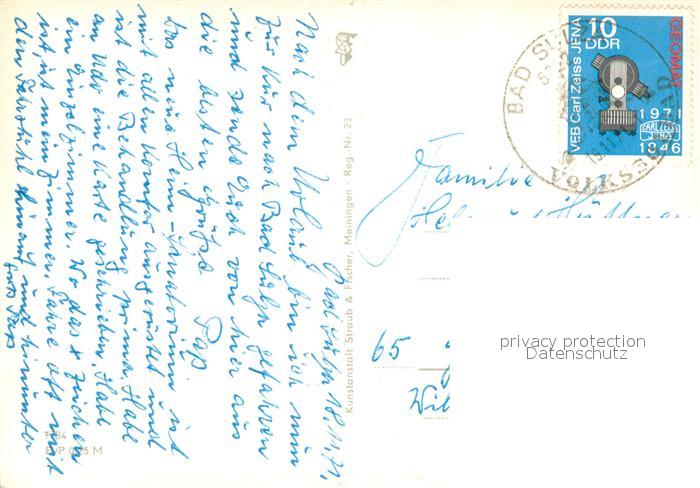 Bad Sulza 18.11.71.
Nach dem Urlaub bin ich nun
zur Kur nach Bad Sulza gefahren
und sende Euch von hier aus
die besten Grüße Pap
Das neue Heim-Sanatorium ist
mit allem Komfort ausgerüstet und
ist die Behandlung prima. Habe
an Udo eine Karte geschrieben. Habe
ein Einzelzimmer. Wo das x Zeichen
ist, ist mein Zimmer. Fahre oft mit
dem Fahrstuhl hinauf und hinunter
Euer Pap
7184
EVP 0,25 M
Kunstanstalt Straub & Fischer, Meiningen · Reg.-Nr. 23
10
DDR
VEB Carl Zeiss JENA
GEOMAT
1971
1846
CARL ZEISS
JENA
BAD SULZA
VOLKSSOLBAD
Familie
65
privacy protection
Datenschutz